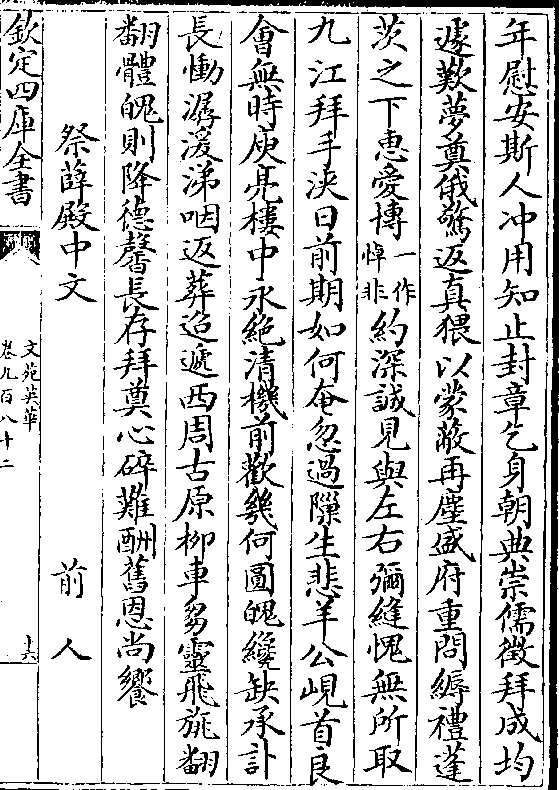 年慰安斯人冲用知止封章乞身朝典崇儒徵拜成均
遽歎夢奠俄驚返真猥以蒙蔽再塵盛府重問縟禮蓬
茨之下惠愛博一作悼非約深誠見與左右彌縫愧無所取
九江拜手浹日前期如何奄忽過隟生悲羊公峴首良
會無時庾亮樓中永絶清機前歡幾何圓魄纔缺承訃
長慟潺湲涕咽返葬迢遞西周古原柳車芻靈飛旐翻
翻體魄則降德馨長存拜奠心碎難酬舊恩尚饗
祭薛殿中文　前人
欽定四庫全書
文苑英華
卷九百八十二
十六